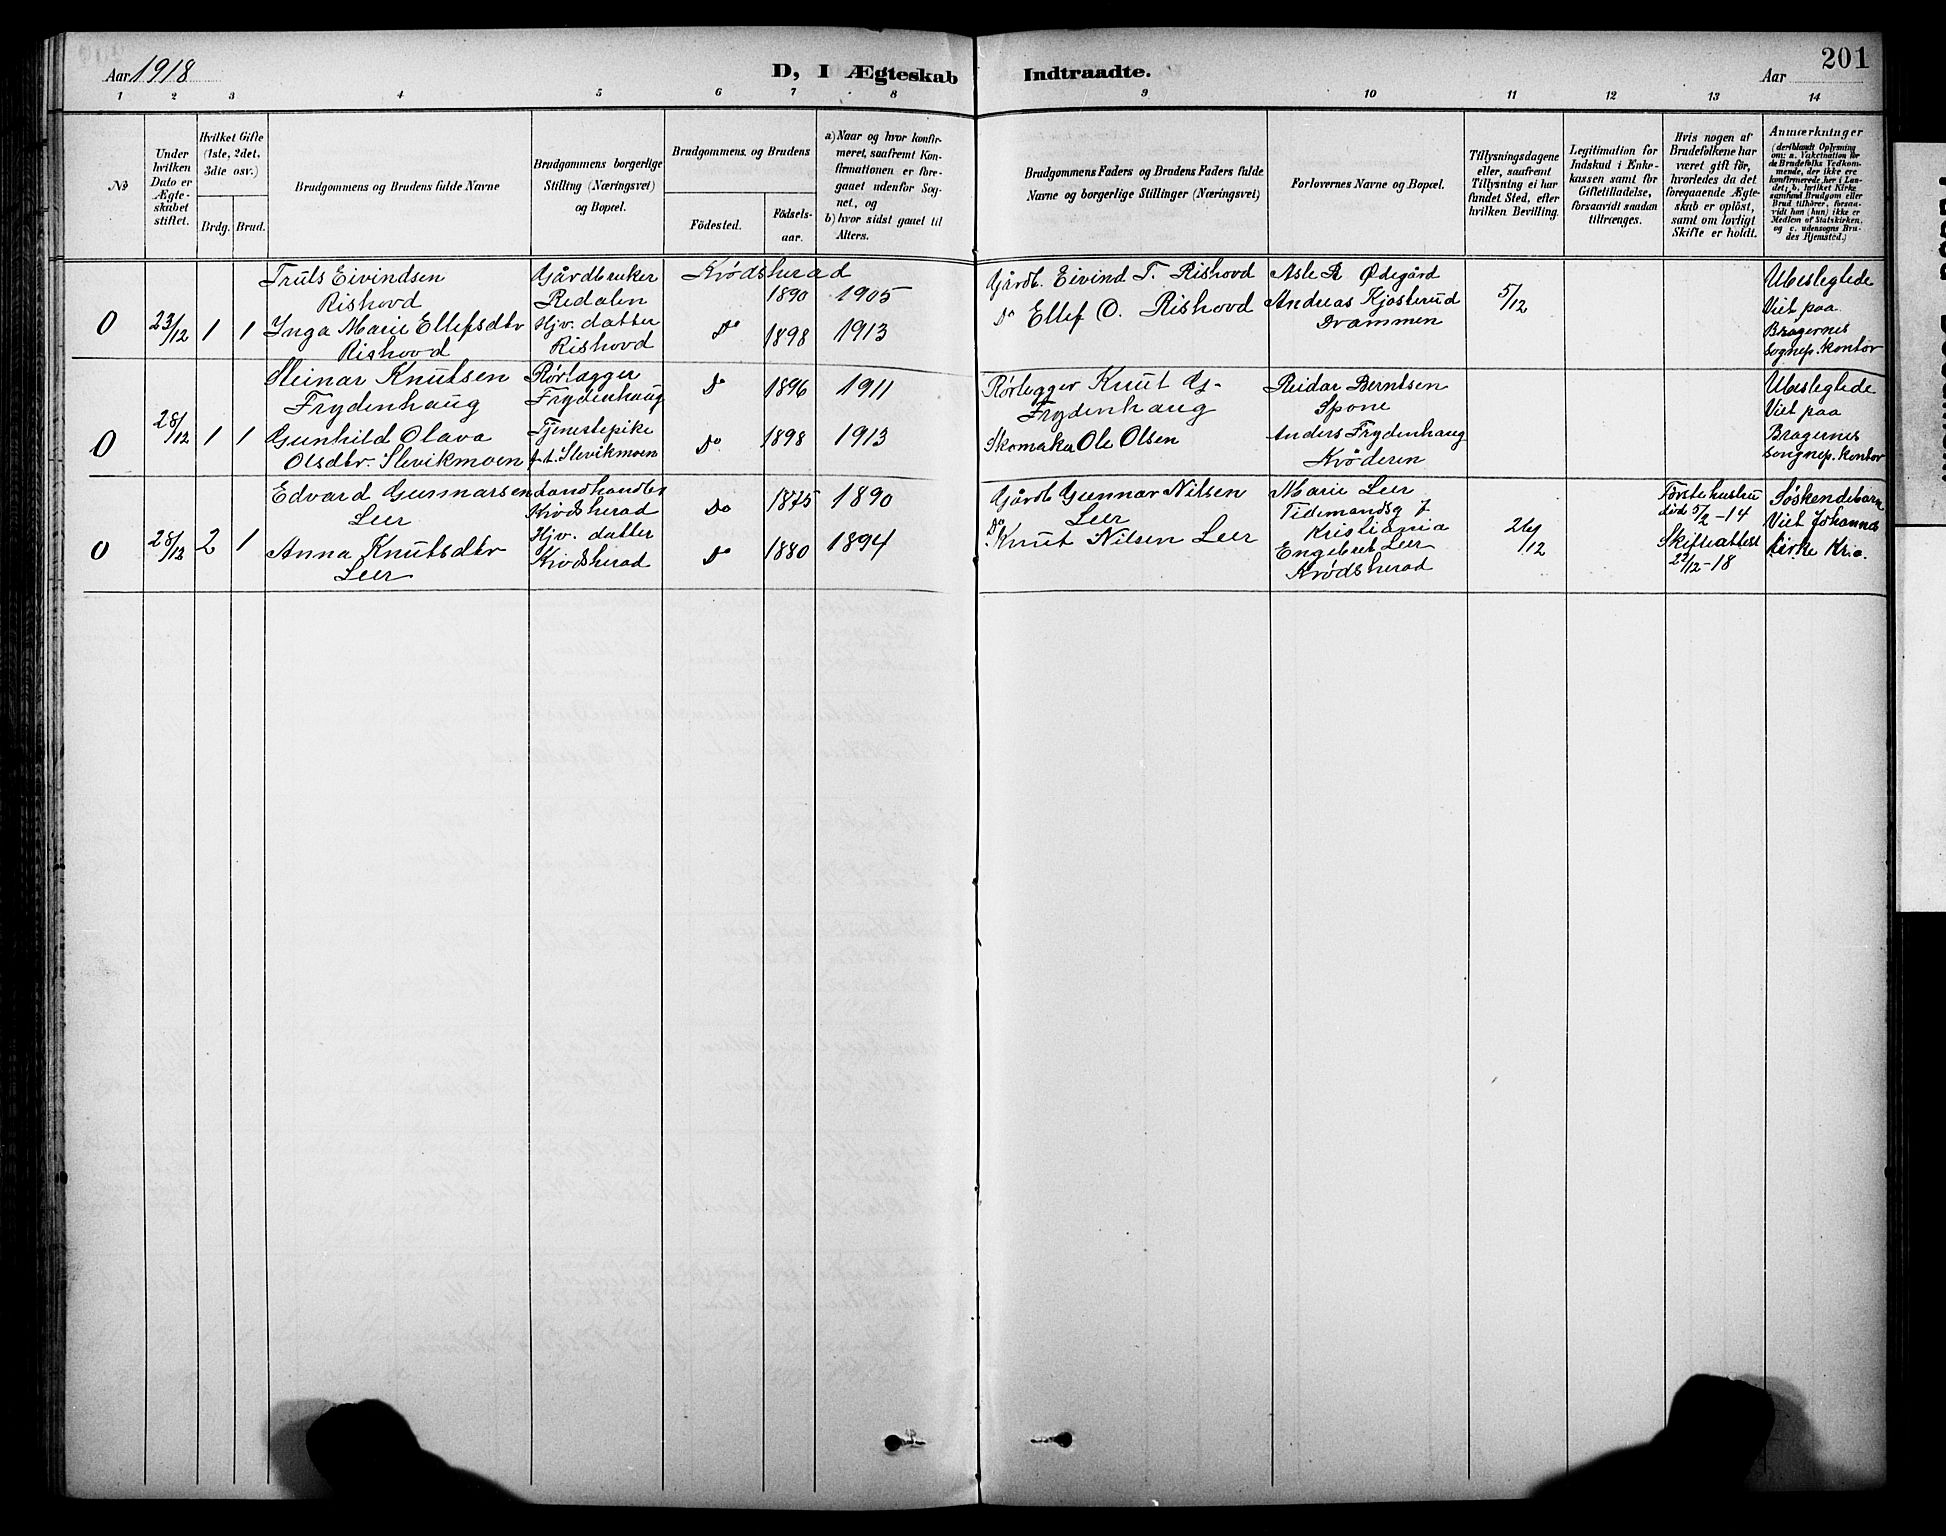 Aar 1918
D, I Ægteskab Indtraadte.
Aar
201
1 2 3 4 5 6 7 8 9 10 11 12 13 14
No
Under hvilken Dato er Ægteskabet stiftet.
Hvilket Gifte (1ste, 2det, 3die osv.)
Brdg. Brud.
Brudgommens og Brudens fulde Navne
Brudgommens borgerlige Stilling (Næringsvei) og Bopæl.
Brudgommens og Brudens
Födested. Födsels-aar.
a) Naar og hvor konfirmeret, saafremt Konfirmationen er foregaaet udenfor Sognet, og
b) hvor sidst gaaet til Alters.
Brudgommens Faders og Brudens Faders fulde Navne og borgerlige Stillinger (Næringsvei)
Forlovernes Navne og Bopæl.
Tillysningsdagene eller, saafremt Tillysning ei har fundet Sted, efter hvilken Bevilling.
Legitimation for Indskud i Enkekassen samt for Giftetilladelse, forsaavidt saadan tiltrænges.
Hvis nogen af Brudefolkene har været gift för, hvorledes da det foregaaende Ægteskab er oplöst, samt om lovligt Skifte er holdt.
Anmærkninger (deriblandt Oplysning om: a. Vakcination for de Brudefolks Vedkommende, der ikke ere konfirmerede her i Landet; b. hvilket Kirkesamfund Brudgom eller Brud tilhörer, forsaavidt han (hun) ikke er Medlem af Statskirken, og c. udensogns Brudes Hjemsted.)
0 23/12 1 1
Truls Eivindsen
Rishovd
Inga Marie Ellefsdtr
Rishovd
Gårdbruker
Redalen
Hjv. datter
Rishovd
Krødsherad
1890 1905
Do 1898 1913
Gårdb. Eivind T. Rishovd
Do Ellef O. Rishovd
Asle R Ødegård
Andreas Kjøsterud
Drammen
5/12
Ubeslegtede
Viet paa
Bragernes
sognep. kontor
0 28/12 1 1
Steinar Knutsen
Frydenhaug
Gunhild Olava
Olsdtr. Slevikmoen
Rørlægger
Frydenhaug
Tjenestepike
f.t. Slevikmoen
Do 1896 1911
Do 1898 1913
Rørlegger Knut G.
Frydenhaug
Skomaker Ole Olsen
Reidar Berntsen
Spone
Anders Frydenhaug
Krøderen
Ubeslegtede
Viet paa
Bragernes
songnep. kontor
0 28/12 2 1
Edvard Gunnarsen
Leer
Anna Knutsdtr
Leer
Landhandler
Krødsherad
Hjv. datter
Krødsherad
Do 1875 1890
Do 1880 1894
Gårdb Gunnar Nilsen
Leer
Do Knut Nilsen Leer
Marie Leer
Tidemandsg 7
Kristiania
Engebret Leer
Krødsherad
26/12
Første hustru
död 5/2-14
Skifteattest
22/12-18
Søskendebarn
Viet Johannes
kirke Kr.a.